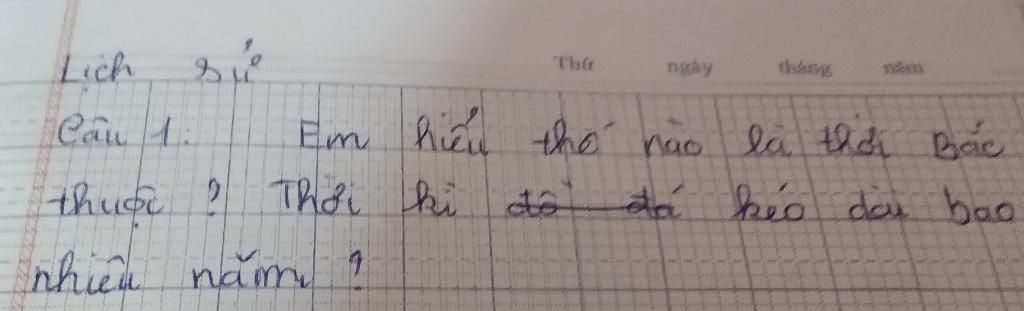 Lịch sử
Thứ ngày tháng năm
Câu 1: Em hiểu thế nào là thời Bắc
thuộc ? Thời kì đô đá kéo dài bao
nhiêu năm ?